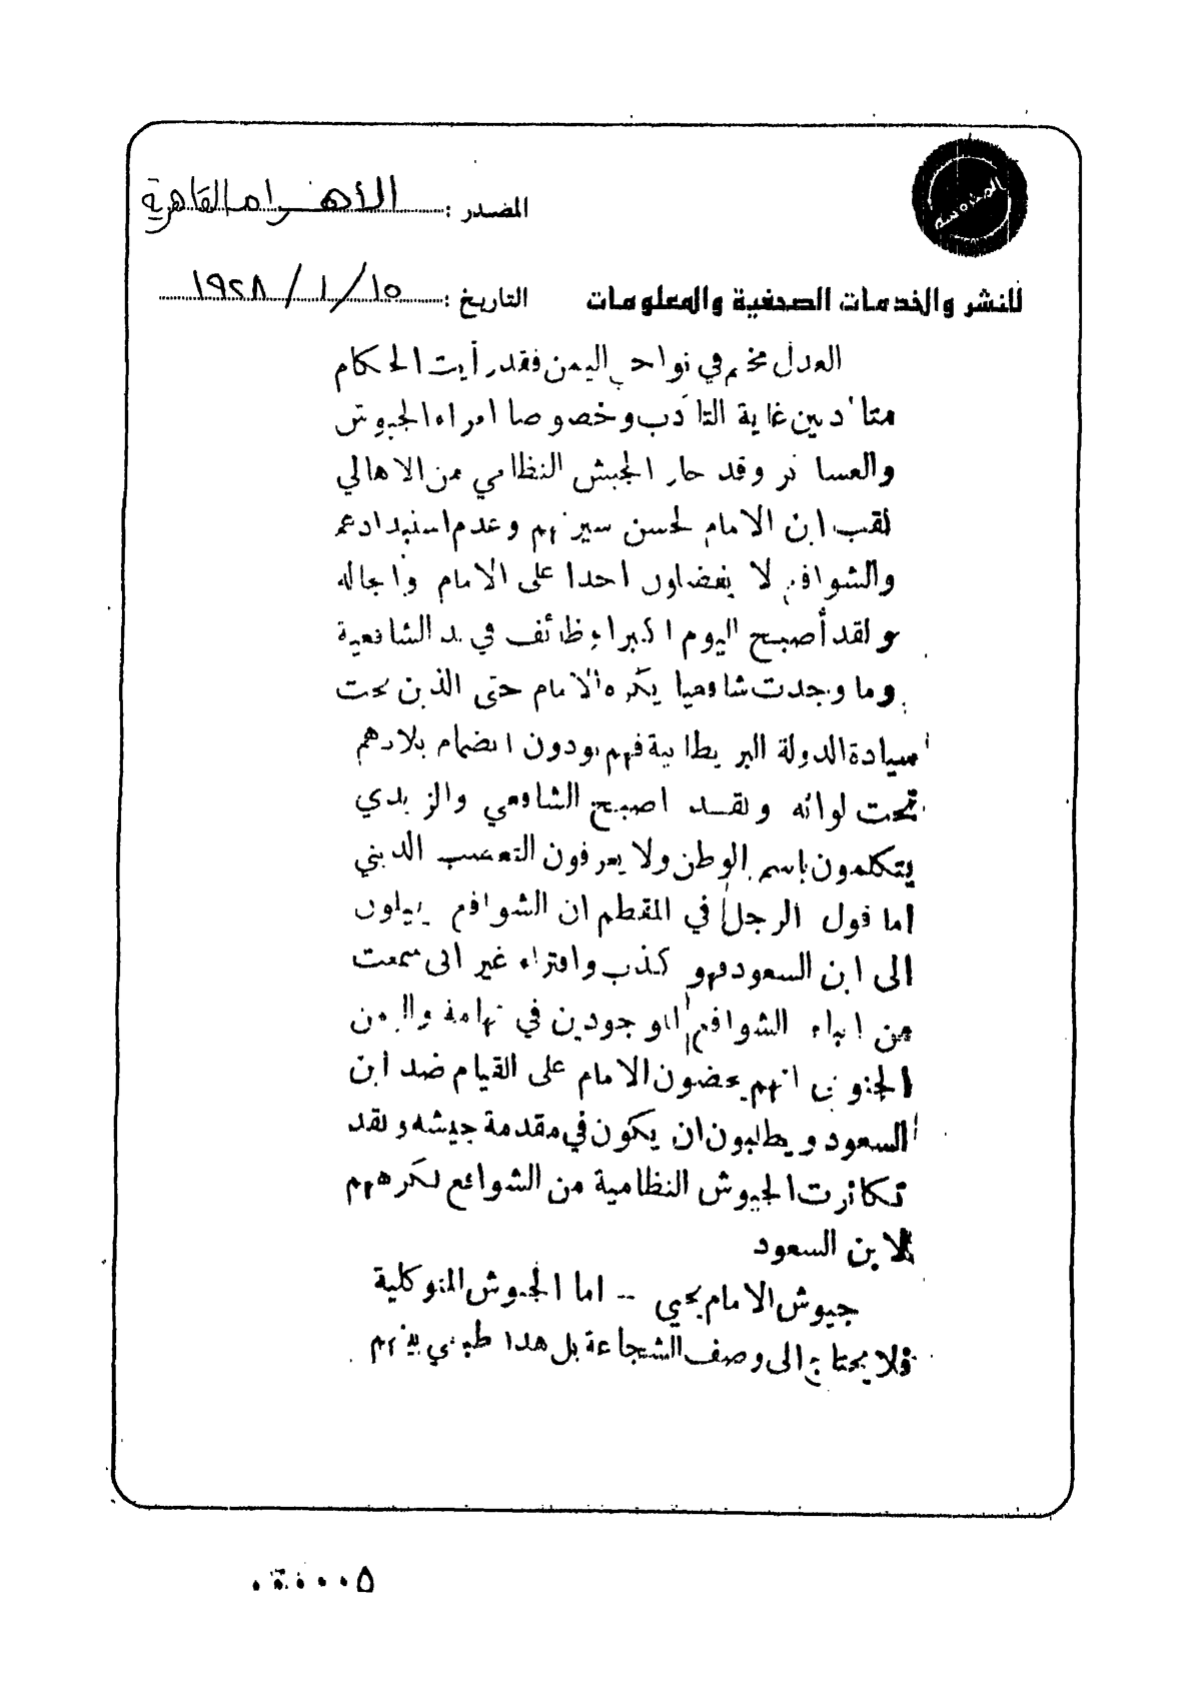 المصدر : الأهرام القاهرية
المحروسة
للنشر والخدمات الصحفية والمعلومات
التاريخ : ١٥ / ١ / ١٩٢٨
العدل مخيم في نواحي اليمن فقد رأيت الحكام
متأدبين غاية التأدب وخصوصا امراء الجيوش
والعساكر وقد حاز الجيش النظامي من الاهالي
لقب ابن الامام لحسن سيرتهم وعدم استبدادهم
والشوافع لا يفضلون احدا على الامام وانجاله
ولقد أصبح اليوم اكبر الوظائف في يد الشافعية
وما وجدت شافعيا يكره الامام حتى الذين تحت
سيادة الدولة البريطانية فهم يودون انضمام بلادهم
تحت لوائه ولقد اصبح الشافعي والزيدي
يتكلمون باسم الوطن ولا يعرفون التعصب الديني
اما قول الرجل في المقطم ان الشوافع يميلون
الى ابن السعود فهو كذب وافتراء غير انى سمعت
من ابناء الشوافع الموجودين في تهامة واليمن
الجنوبي انهم يحضون الامام على القيام ضد ابن
السعود ويطالبون ان يكون في مقدمة جيشه ولقد
تكاثرت الجيوش النظامية من الشوافع لكرههم
لابن السعود
جيوش الامام يحيي -- اما الجيوش المتوكلية
فلا يحتاج الى وصف الشجاعة بل هذا طبيعي بينهم